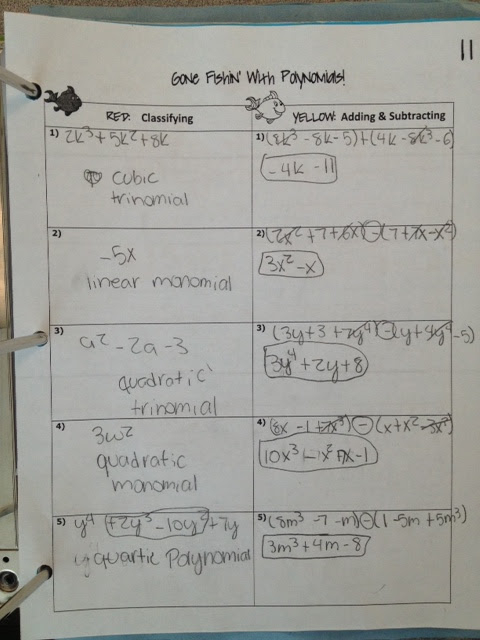 11
Gone Fishin' With Polynomials!
RED: Classifying
YELLOW: Adding & Subtracting
1) 2k³ + 5k² + 8k
cubic
trinomial
1) (8k³ - 8k - 5) + (4k - 8k³ - 6)
-4k - 11
2)
-5x
linear monomial
2) (2x² + 7 + 6x) - (7 + 7x - x²)
3x² - x
3) a² - 2a - 3
quadratic
trinomial
3) (3y + 3 + 7y⁴) - (y + 4y⁴ - 5)
3y⁴ + 2y + 8
4)
3w²
quadratic
monomial
4) (8x - 1 + 7x³) - (x + x² - 3x³)
10x³ - x² + 7x - 1
5) y⁴ + 2y³ - 10y² + 7y
quartic Polynomial
5) (8m³ - 7 - m) - (1 - 5m + 5m³)
3m³ + 4m - 8